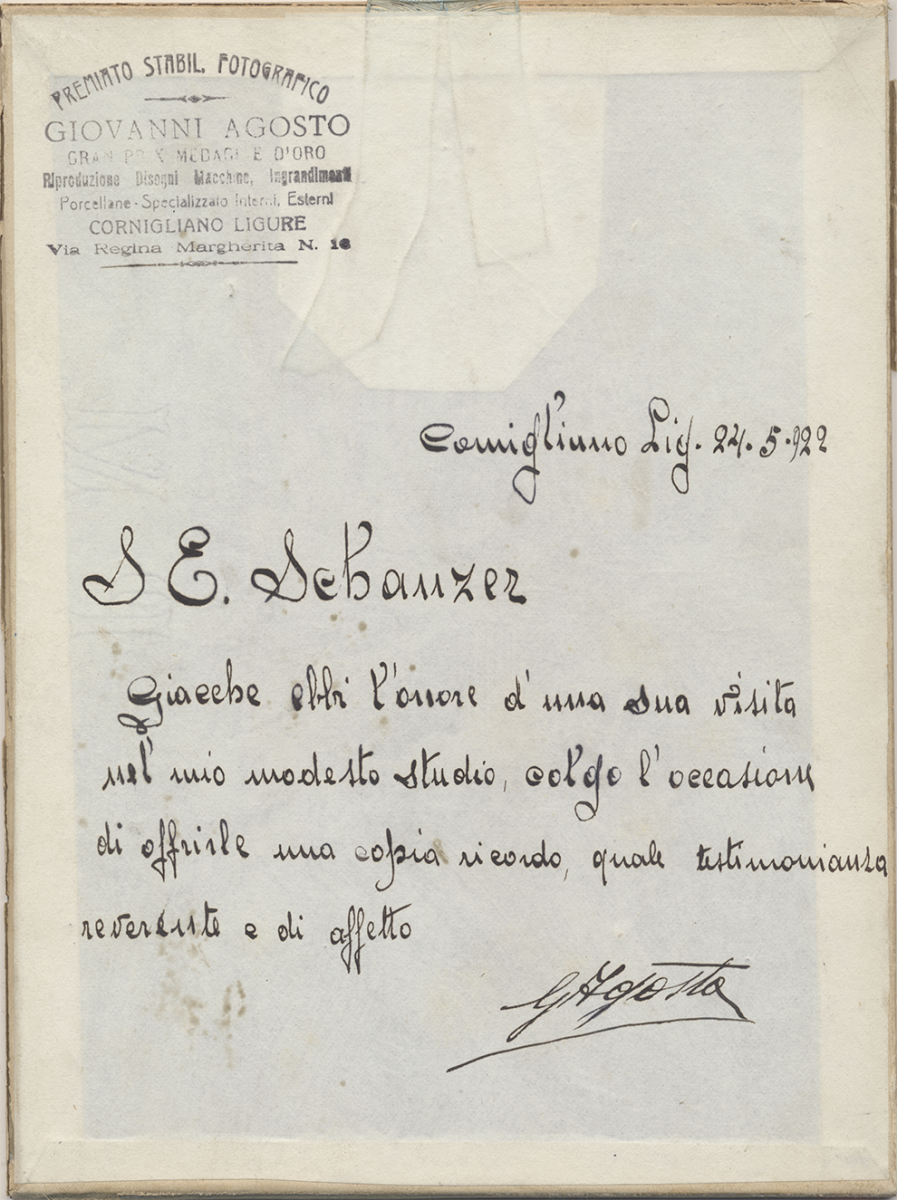 PREMIATO STABIL. FOTOGRAFICO
GIOVANNI AGOSTO
GRAN PRIX MEDAGLIE D'ORO
Riproduzione Disegni Macchine, Ingrandimenti
Porcellane - Specializzato Interni, Esterni
CORNIGLIANO LIGURE
Via Regina Margherita N. 16
Cornigliano Lig. 24. 5. 922
S E. Schanzer
Giacche ebbi l'onore d'una sua visita
nel mio modesto studio, colgo l'occasione
di offrirle una copia ricordo, quale testimonianza
reverente e di affetto
GAgosto